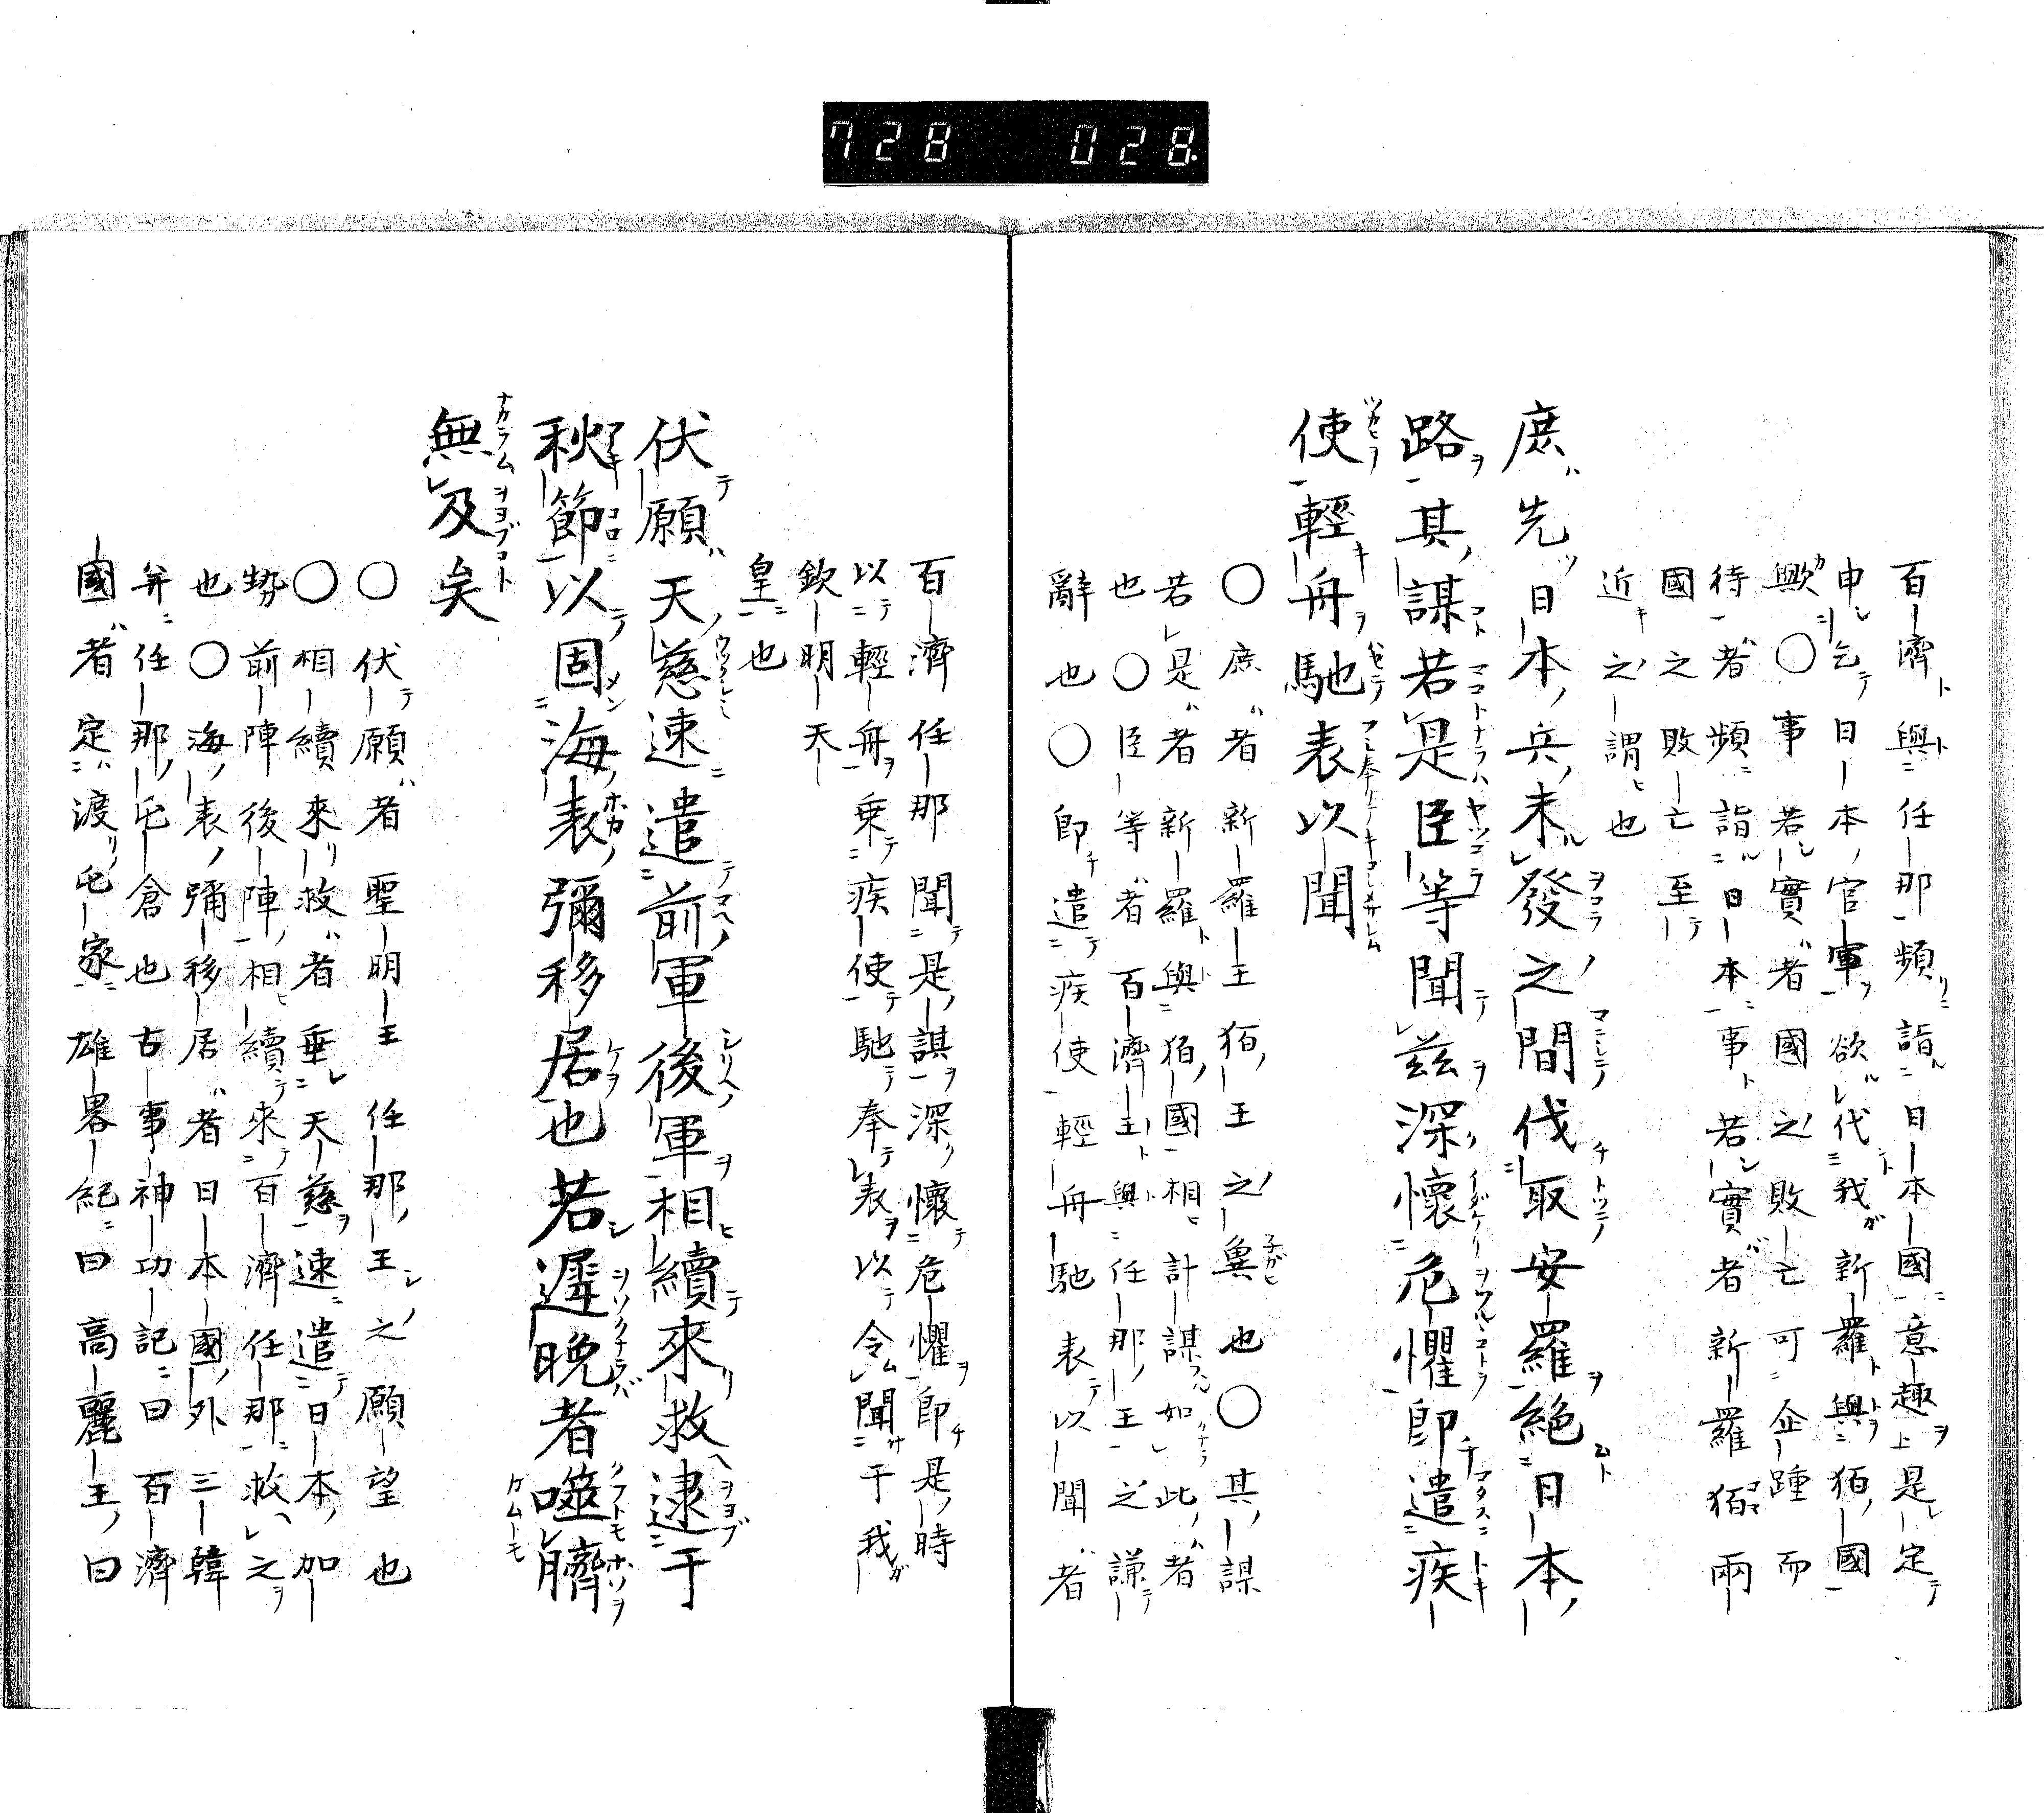 728 028.
百濟與任那頻詣日本國意趣是定
申乞日本官軍欲代我新羅與狛國
歟〇事若實者國之敗亡可企踵而
待者頻詣日本事若實者新羅狛兩
國之敗亡至
近之謂也
庶先日本兵未發之間伐取安羅絶日本
路其謀若是臣等聞兹深懷危懼即遣疾
使輕舟馳表以聞
〇庶者新羅王狛王之兾也〇其謀
若是者新羅與狛國相計謀如此者
也〇臣等者百濟王與任那王之謙
辭也〇即遣疾使輕舟馳表以聞者
百濟任那聞是謀深懷危懼即是時
以輕舟乗疾使馳奉表以令聞于我
欽明天
皇也
伏願天慈速遣前軍後軍相續來救逮于
秋節以固海表彌移居也若遲晩者噬臍
無及矣
〇伏願者聖明王任那王之願望也
〇相續來救者垂天慈速遣日本加
勢前陣後陣相續來百濟任那救之
也〇海表彌移居者日本國外三韓
并任那屯倉也古事神功記曰百濟
國者定渡屯家雄畧紀曰高麗王曰